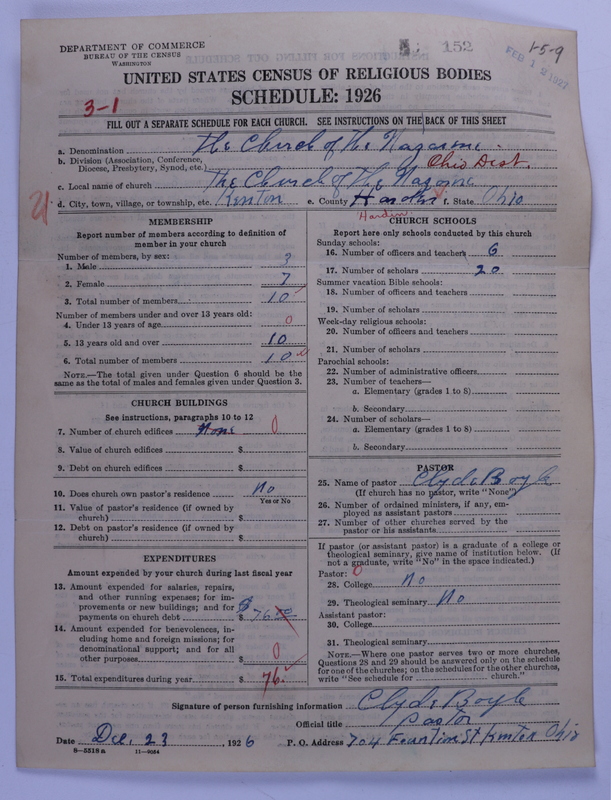 DEPARTMENT OF COMMERCE
BUREAU OF THE CENSUS
WASHINGTON
152
FEB 12 1927
1-5-9
UNITED STATES CENSUS OF RELIGIOUS BODIES
SCHEDULE: 1926
3-1
FILL OUT A SEPARATE SCHEDULE FOR EACH CHURCH. SEE INSTRUCTIONS ON THE BACK OF THIS SHEET
a. Denomination The Church of The Nazarene
b. Division (Association, Conference, Diocese, Presbytery, Synod, etc.) Ohio Dist.
c. Local name of church The Church of The Nazarene
d. City, town, village, or township, etc. Kenton e. County Hardin f. State Ohio
Hardin
MEMBERSHIP
Report number of members according to definition of
member in your church
Number of members, by sex:
1. Male 3
2. Female 7
3. Total number of members 10
Number of members under and over 13 years old:
4. Under 13 years of age 0
5. 13 years old and over 10
6. Total number of members 10
NOTE.—The total given under Question 6 should be
the same as the total of males and females given under Question 3.
CHURCH BUILDINGS
See instructions, paragraphs 10 to 12
7. Number of church edifices None 0
8. Value of church edifices $
9. Debt on church edifices $
10. Does church own pastor's residence No
Yes or No
11. Value of pastor's residence (if owned by
church) $
12. Debt on pastor's residence (if owned by
church) $
EXPENDITURES
Amount expended by your church during last fiscal year
13. Amount expended for salaries, repairs,
and other running expenses; for im-
provements or new buildings; and for
payments on church debt $ 76.00
14. Amount expended for benevolences, in-
cluding home and foreign missions; for
denominational support; and for all
other purposes $ 0
15. Total expenditures during year $ 76.
CHURCH SCHOOLS
Report here only schools conducted by this church
Sunday schools:
16. Number of officers and teachers 6
17. Number of scholars 20
Summer vacation Bible schools:
18. Number of officers and teachers
19. Number of scholars
Week-day religious schools:
20. Number of officers and teachers
21. Number of scholars
Parochial schools:
22. Number of administrative officers
23. Number of teachers—
a. Elementary (grades 1 to 8)
b. Secondary
24. Number of scholars—
a. Elementary (grades 1 to 8)
b. Secondary
PASTOR
25. Name of pastor Clyde Boyle
(If church has no pastor, write "None")
26. Number of ordained ministers, if any, em-
ployed as assistant pastors
27. Number of other churches served by the
pastor or his assistants
If pastor (or assistant pastor) is a graduate of a college or
theological seminary, give name of institution below. (If
not a graduate, write "No" in the space indicated.)
Pastor: 0
28. College No
29. Theological seminary No
Assistant pastor:
30. College
31. Theological seminary
NOTE.—Where one pastor serves two or more churches,
Questions 28 and 29 should be answered only on the schedule
for one of the churches; on the schedules for the other churches,
write "See schedule for church."
Signature of person furnishing information Clyde Boyle
Official title Pastor
Date Dec. 23, 1926 P. O. Address 704 Fountin St Kenton Ohio
8-5318a 11-9064